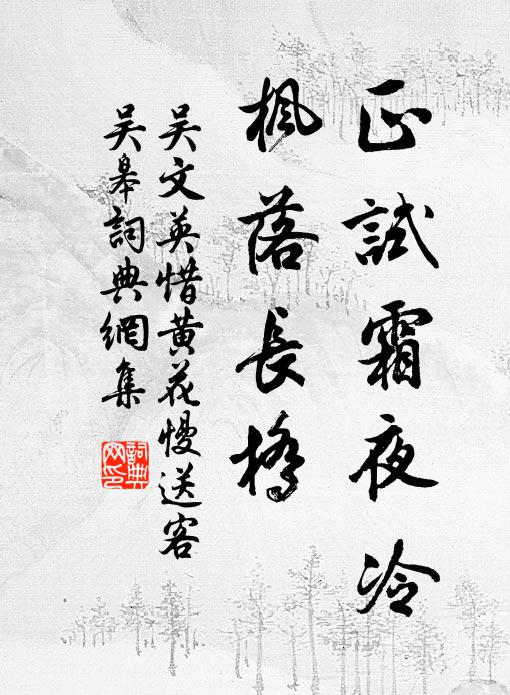 正試霜夜冷
楓落長橋
吴文英惜黄花慢送客
吴皋詞典網集
詞典网印